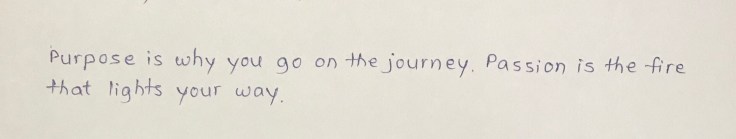 Purpose is why you go on the journey. Passion is the fire
that lights your way.